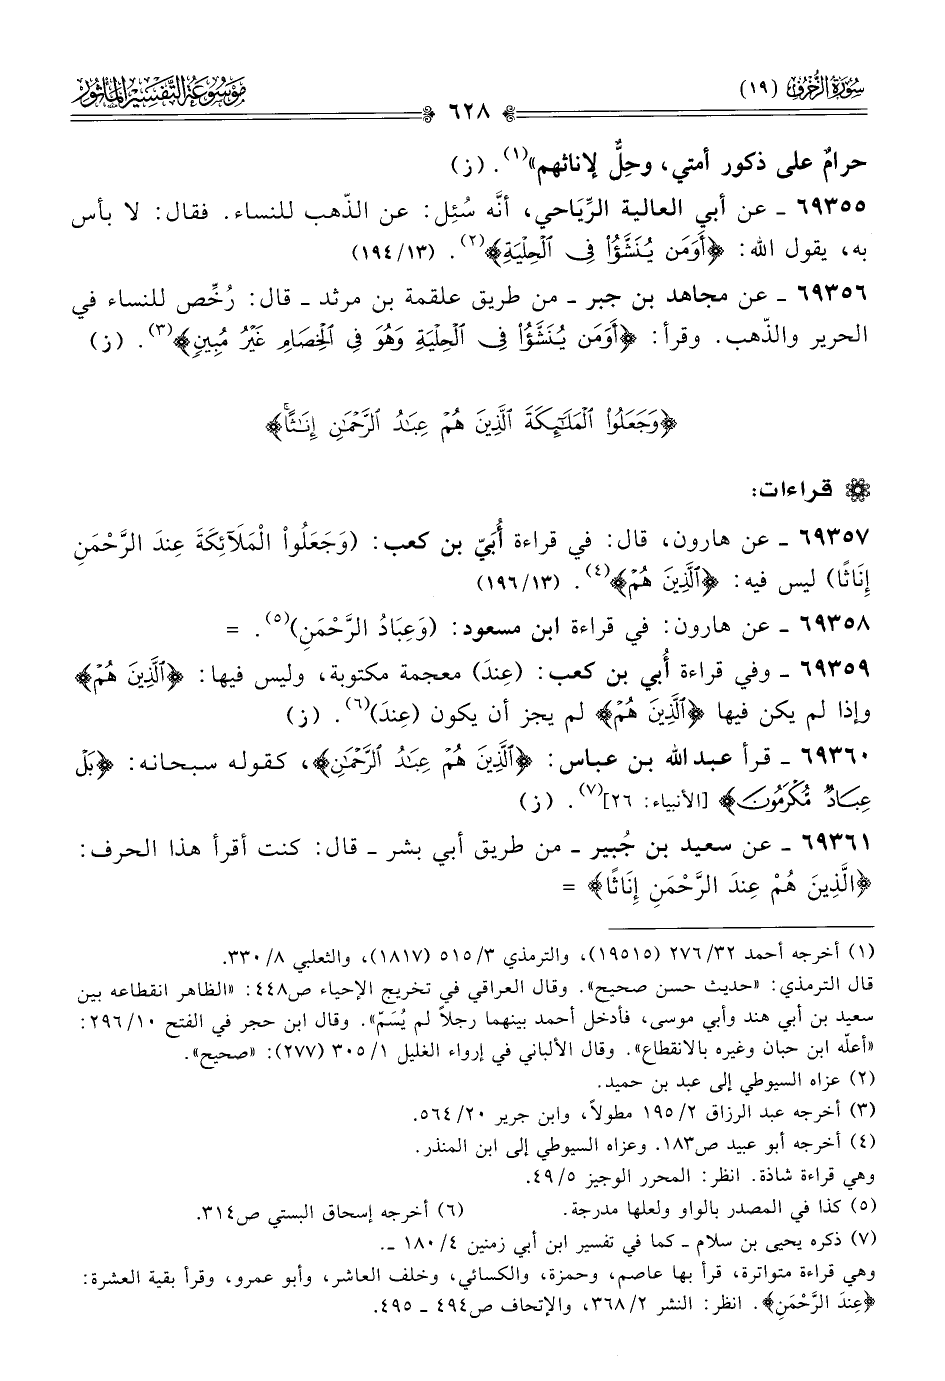 سُورَةُ الزُّخْرُفِ (١٩)
٦٢٨
مَوْسُوعَة التَّفْسِير المَأْثُور
حرامٌ على ذكور أمتي، وحِلٌّ لإناثهم»(١). (ز)
٦٩٣٥٥ ـ عن أبي العالية الرِّيَاحي، أنَّه سُئِل: عن الذّهب للنساء. فقال: لا بأس
به، يقول الله: ﴿أَوَمَن يُنَشَّؤُاْ فِي ٱلْحِلْيَةِ﴾(٢). (١٣/ ١٩٤)
٦٩٣٥٦ ـ عن مجاهد بن جبر ـ من طريق علقمة بن مرثد ـ قال: رُخِّص للنساء في
الحرير والذّهب. وقرأ: ﴿أَوَمَن يُنَشَّؤُاْ فِي ٱلْحِلْيَةِ وَهُوَ فِي ٱلْخِصَامِ غَيْرُ مُبِينٍ﴾(٣). (ز)
﴿وَجَعَلُواْ ٱلْمَلَٰٓئِكَةَ ٱلَّذِينَ هُمْ عِبَٰدُ ٱلرَّحْمَٰنِ إِنَٰثًاۚ﴾
قراءات:
٦٩٣٥٧ ـ عن هارون، قال: في قراءة أُبيّ بن كعب: (وَجَعَلُواْ الْمَلَآئِكَةَ عِندَ الرَّحْمَنِ
إِنَاثًا) ليس فيه: ﴿ٱلَّذِينَ هُمْ﴾(٤). (١٣/ ١٩٦)
٦٩٣٥٨ ـ عن هارون: في قراءة ابن مسعود: (وَعِبَادُ الرَّحْمَنِ)(٥). =
٦٩٣٥٩ ـ وفي قراءة أُبي بن كعب: (عِندَ) معجمة مكتوبة، وليس فيها: ﴿ٱلَّذِينَ هُمْ﴾
وإذا لم يكن فيها ﴿ٱلَّذِينَ هُمْ﴾ لم يجز أن يكون (عِندَ)(٦). (ز)
٦٩٣٦٠ ـ قرأ عبد الله بن عباس: ﴿ٱلَّذِينَ هُمْ عِبَٰدُ ٱلرَّحْمَٰنِ﴾، كقوله سبحانه: ﴿بَلْ
عِبَادٌ مُّكْرَمُونَ﴾ [الأنبياء: ٢٦](٧). (ز)
٦٩٣٦١ ـ عن سعيد بن جُبير ـ من طريق أبي بشر ـ قال: كنت أقرأ هذا الحرف:
﴿الَّذِينَ هُمْ عِندَ الرَّحْمَنِ إِنَاثًا﴾ =
(١) أخرجه أحمد ٣٢/ ٢٧٦ (١٩٥١٥)، والترمذي ٣/ ٥١٥ (١٨١٧)، والثعلبي ٨/ ٣٣٠.
قال الترمذي: «حديث حسن صحيح». وقال العراقي في تخريج الإحياء ص٤٤٨: «الظاهر انقطاعه بين
سعيد بن أبي هند وأبي موسى، فأدخل أحمد بينهما رجلاً لم يُسَمّ». وقال ابن حجر في الفتح ١٠/ ٢٩٦:
«أعلّه ابن حبان وغيره بالانقطاع». وقال الألباني في إرواء الغليل ١/ ٣٠٥ (٢٧٧): «صحيح».
(٢) عزاه السيوطي إلى عبد بن حميد.
(٣) أخرجه عبد الرزاق ٢/ ١٩٥ مطولاً، وابن جرير ٢٠/ ٥٦٤.
(٤) أخرجه أبو عبيد ص١٨٣. وعزاه السيوطي إلى ابن المنذر.
وهي قراءة شاذة. انظر: المحرر الوجيز ٥/ ٤٩.
(٥) كذا في المصدر بالواو ولعلها مدرجة. (٦) أخرجه إسحاق البستي ص٣١٤.
(٧) ذكره يحيى بن سلام ـ كما في تفسير ابن أبي زمنين ٤/ ١٨٠ ـ.
وهي قراءة متواترة، قرأ بها عاصم، وحمزة، والكسائي، وخلف العاشر، وأبو عمرو، وقرأ بقية العشرة:
﴿عِندَ الرَّحْمَنِ﴾. انظر: النشر ٢/ ٣٦٨، والإتحاف ص٤٩٤ ـ ٤٩٥.